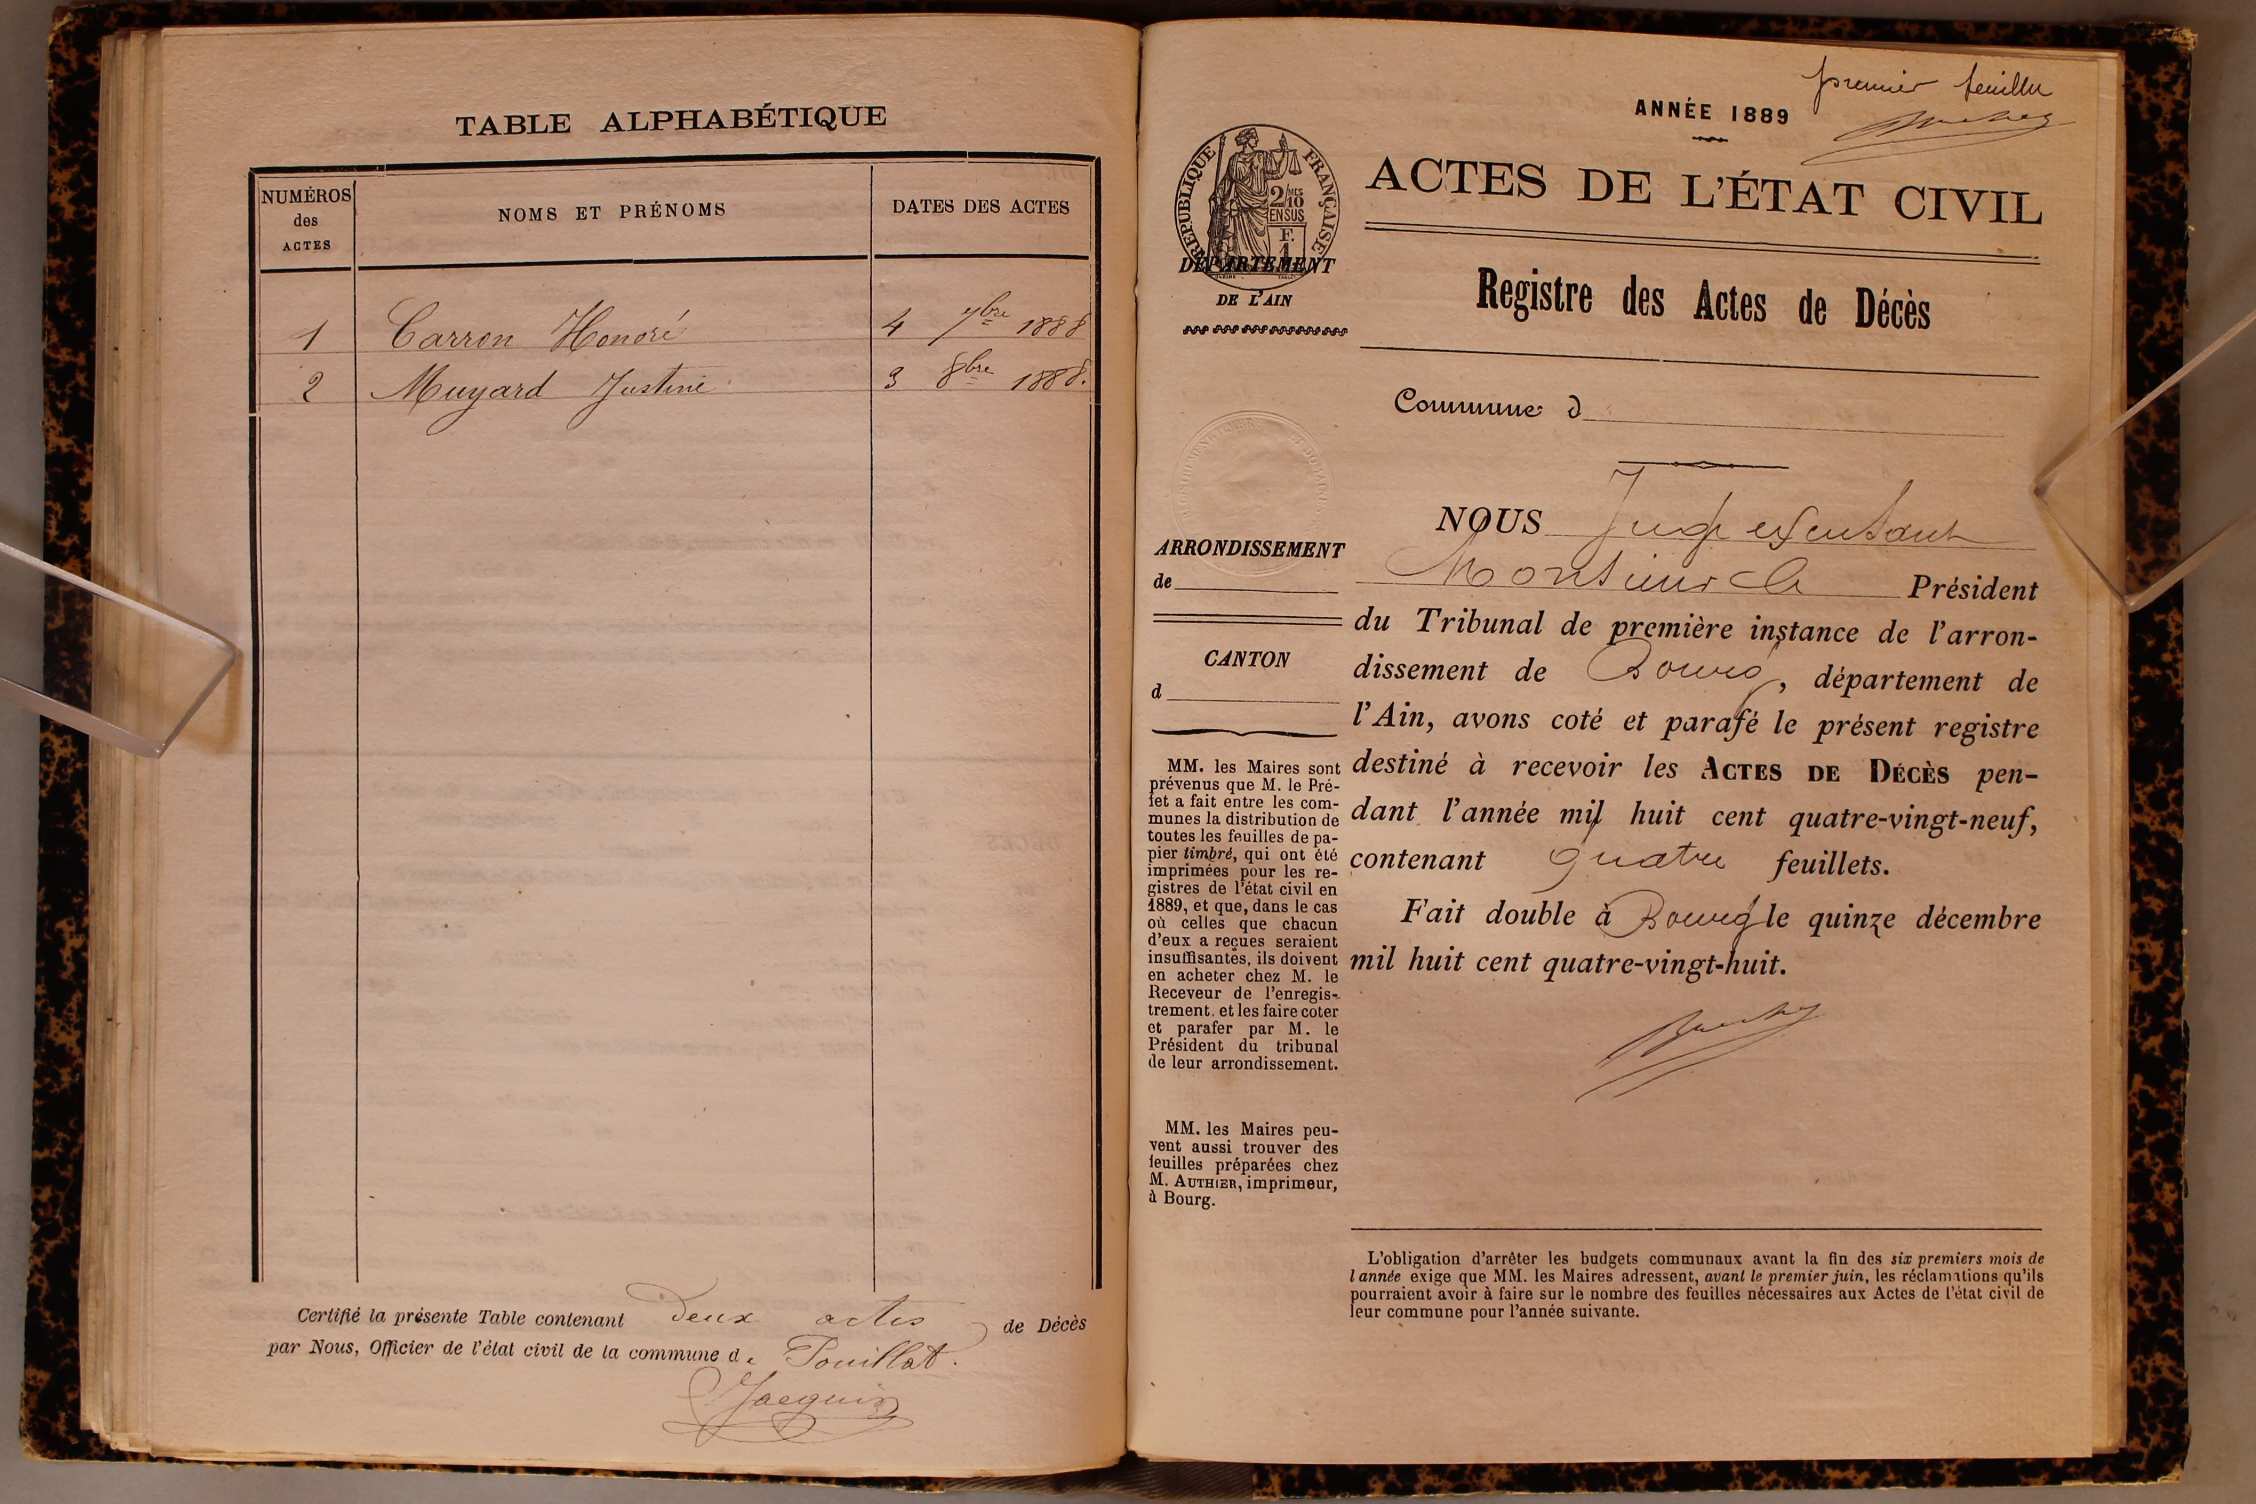 TABLE ALPHABÉTIQUE
NUMÉROS
des
ACTES
NOMS ET PRÉNOMS
DATES DES ACTES
1 Carron Honoré 4 7bre 1888
2 Muyard Justine 3 8bre 1888.
Certifié la présente Table contenant deux actes de Décès
par Nous, Officier de l'état civil de la commune de Pouillat.
Jacquin
premier feuillet
ANNÉE 1889
RÉPUBLIQUE FRANÇAISE
2/10
MES
EN SUS
F.
1
DÉPARTEMENT
DE L'AIN
ACTES DE L'ÉTAT CIVIL
Registre des Actes de Décès
Commune d
ARRONDISSEMENT
de
CANTON
d
MM. les Maires sont
prévenus que M. le Pré-
fet a fait entre les com-
munes la distribution de
toutes les feuilles de pa-
pier timbré, qui ont été
imprimées pour les re-
gistres de l'état civil en
1889, et que, dans le cas
où celles que chacun
d'eux a reçues seraient
insuffisantes, ils doivent
en acheter chez M. le
Receveur de l'enregis-
trement, et les faire coter
et parafer par M. le
Président du tribunal
de leur arrondissement.
MM. les Maires peu-
vent aussi trouver des
feuilles préparées chez
M. AUTHIER, imprimeur,
à Bourg.
NOUS Juge
Monsieur le Président
du Tribunal de première instance de l'arron-
dissement de Bourg, département de
l'Ain, avons coté et parafé le présent registre
destiné à recevoir les ACTES DE DÉCÈS pen-
dant l'année mil huit cent quatre-vingt-neuf,
contenant quatre feuillets.
Fait double à Bourg le quinze décembre
mil huit cent quatre-vingt-huit.
L'obligation d'arrêter les budgets communaux avant la fin des six premiers mois de
l'année exige que MM. les Maires adressent, avant le premier juin, les réclamations qu'ils
pourraient avoir à faire sur le nombre des feuilles nécessaires aux Actes de l'état civil de
leur commune pour l'année suivante.